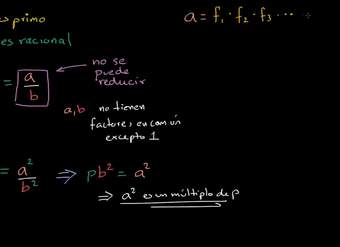 primo
a = f₁ · f₂ · f₃ ...
es racional
= a/b
no se
puede
reducir
a,b no tienen
factores en común
excepto 1
= a²/b² ⇒ pb² = a²
⇒ a² es un múltiplo de p